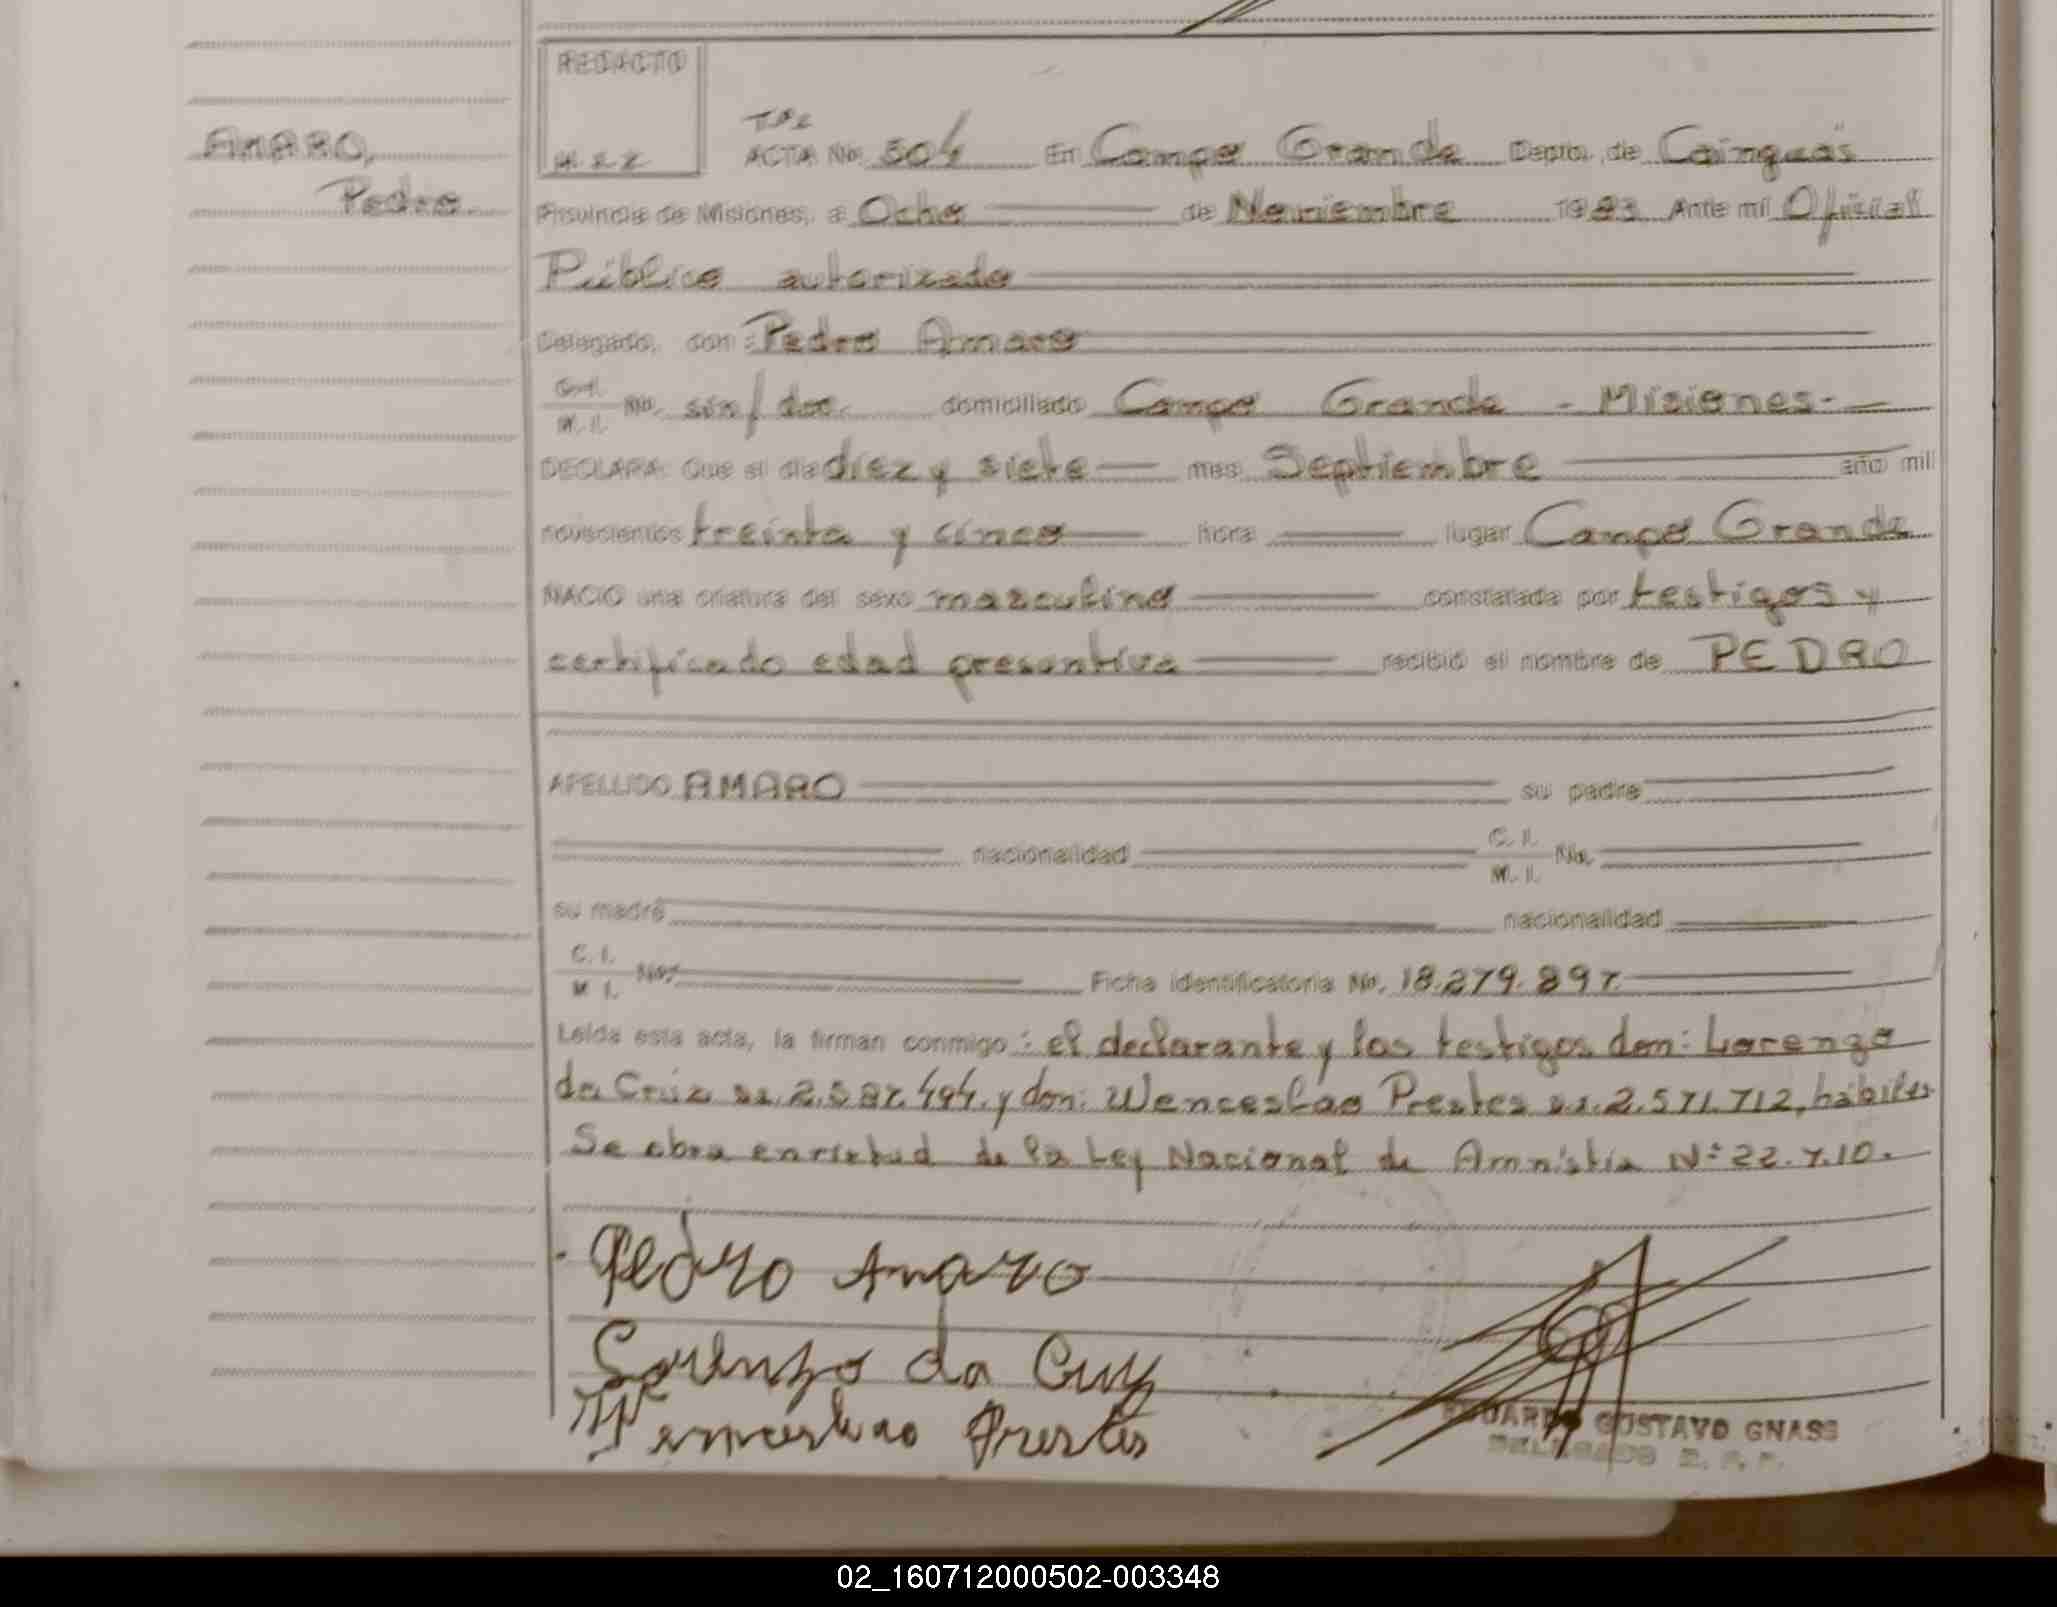 REDACTO
AMARO,
Pedro
ACTA No. 504 En Campo Grande Depto. de Cainguás
Provincia de Misiones, a Ocho de Noviembre 1983 Ante mi Oficial
Público autorizado
Delegado, con: Pedro Amaro
C.I.
M.I. No. sin/doc. domiciliado Campo Grande - Misiones-
DECLARA: Que el dia diez y siete mes Septiembre año mil
noviscientos treinta y cinco hora lugar Campo Grande
NACIO una criatura del sexo masculino constatada por testigos y
certificado edad presuntiva recibió el nombre de PEDRO
APELLIDO AMARO su padre
nacionalidad C. I.
M. I. No.
su madre nacionalidad
C. I.
M I. No. Ficha identificatoria No. 18.279.897.
Leida esta acta, la firman conmigo: el declarante y los testigos don: Lorenzo
da Crúz y don: Wenceslao Prestes 2.571.712, hábiles
Se obra en virtud de la Ley Nacional de Amnistia Nº 22.710.
Pedro Amaro
Lorenzo da Cruz
Wenceslao Prestes
EDUARDO GUSTAVO GNASS
DELEGADO R. P. P.
02_160712000502-003348